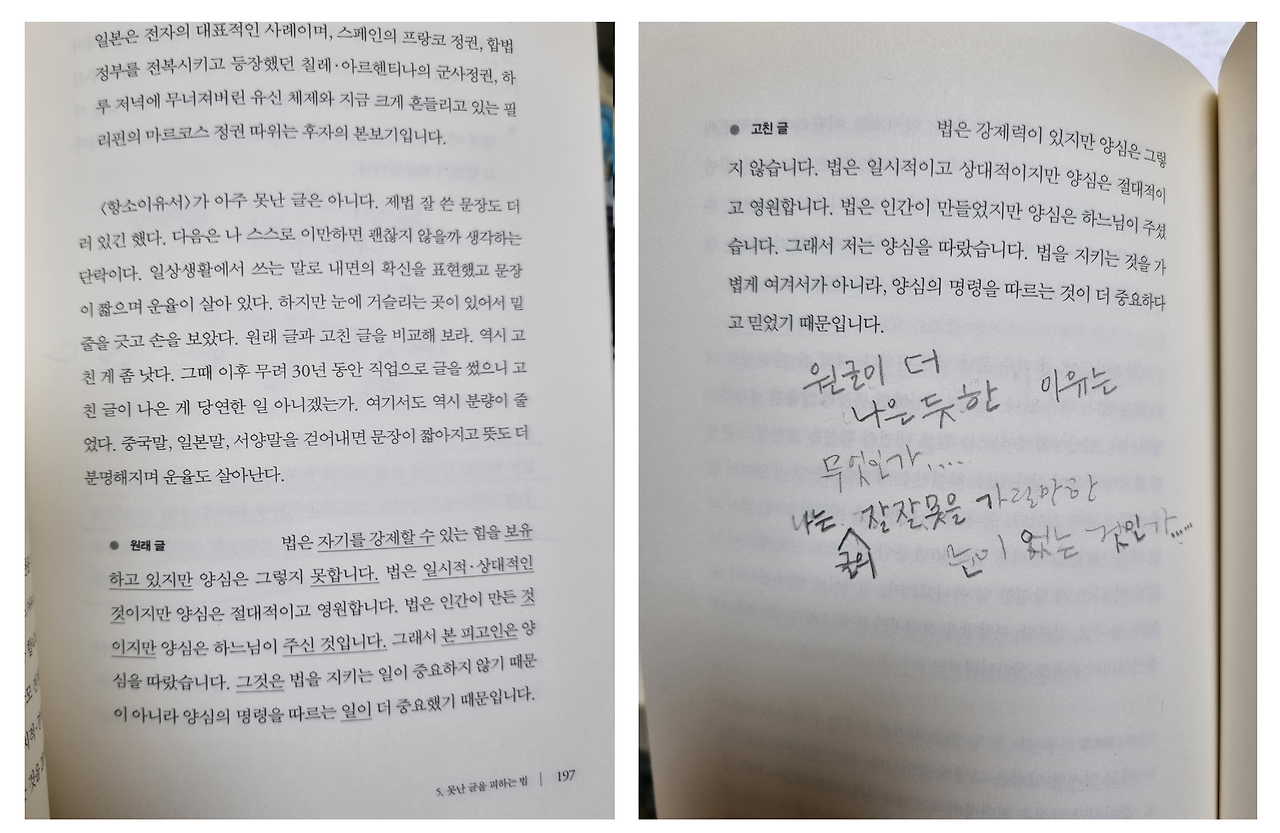 일본은 전자의 대표적인 사례이며, 스페인의 프랑코 정권, 합법
정부를 전복시키고 등장했던 칠레·아르헨티나의 군사정권, 하
루 저녁에 무너져버린 유신 체제와 지금 크게 흔들리고 있는 필
리핀의 마르코스 정권 따위는 후자의 본보기입니다.
〈항소이유서〉가 아주 못난 글은 아니다. 제법 잘 쓴 문장도 더
러 있긴 했다. 다음은 나 스스로 이만하면 괜찮지 않을까 생각하는
단락이다. 일상생활에서 쓰는 말로 내면의 확신을 표현했고 문장
이 짧으며 운율이 살아 있다. 하지만 눈에 거슬리는 곳이 있어서 밑
줄을 긋고 손을 보았다. 원래 글과 고친 글을 비교해 보라. 역시 고
친 게 좀 낫다. 그때 이후 무려 30년 동안 직업으로 글을 썼으니 고
친 글이 나은 게 당연한 일 아니겠는가. 여기서도 역시 분량이 줄
었다. 중국말, 일본말, 서양말을 걷어내면 문장이 짧아지고 뜻도 더
분명해지며 운율도 살아난다.
● 원래 글 법은 자기를 강제할 수 있는 힘을 보유
하고 있지만 양심은 그렇지 못합니다. 법은 일시적·상대적인
것이지만 양심은 절대적이고 영원합니다. 법은 인간이 만든 것
이지만 양심은 하느님이 주신 것입니다. 그래서 본 피고인은 양
심을 따랐습니다. 그것은 법을 지키는 일이 중요하지 않기 때문
이 아니라 양심의 명령을 따르는 일이 더 중요했기 때문입니다.
5. 못난 글을 피하는 법 | 197
● 고친 글 법은 강제력이 있지만 양심은 그렇
지 않습니다. 법은 일시적이고 상대적이지만 양심은 절대적이
고 영원합니다. 법은 인간이 만들었지만 양심은 하느님이 주셨
습니다. 그래서 저는 양심을 따랐습니다. 법을 지키는 것을 가
볍게 여겨서가 아니라, 양심의 명령을 따르는 것이 더 중요하다
고 믿었기 때문입니다.
원글이 더
나은 듯한 이유는
무엇인가....
나는 글의 잘잘못을 가릴만한
눈이 없는 것인가....